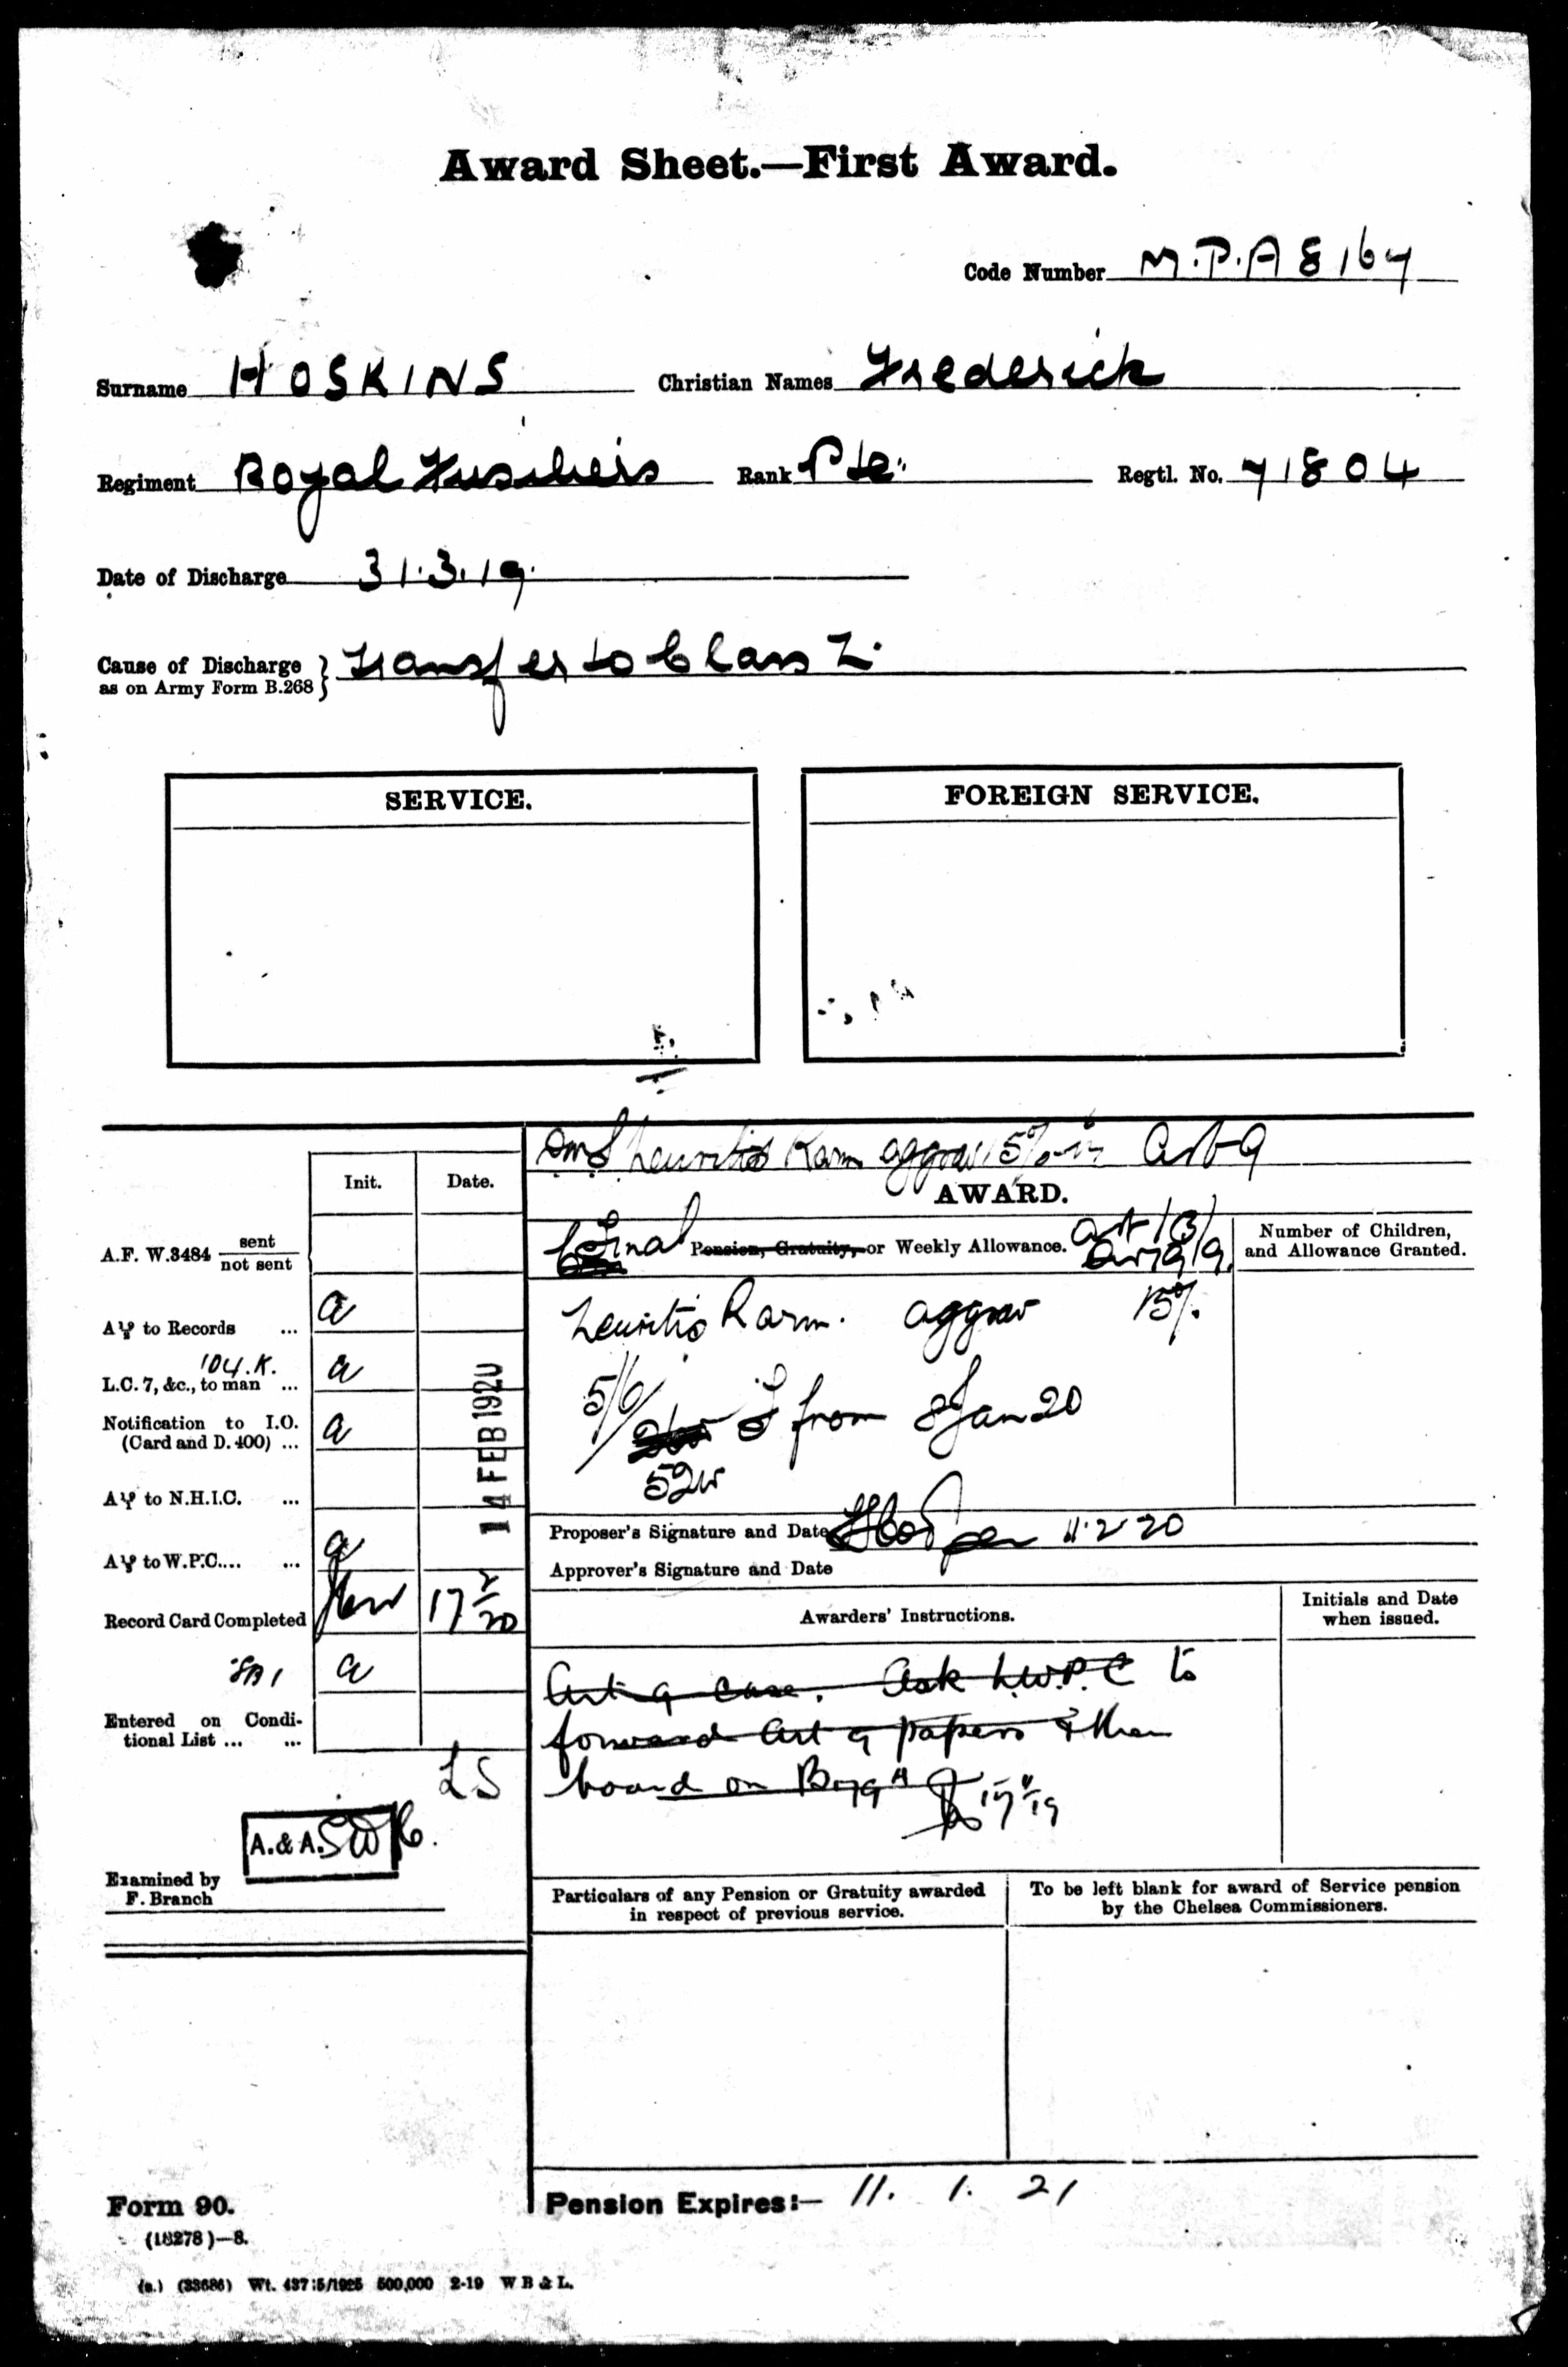 Award Sheet.—First Award.
Code Number M.P.A 8167
Surname HOSKINS Christian Names Frederick
Regiment Royal Fusiliers Rank Pte. Regtl. No. 71804
Date of Discharge 31.3.19.
Cause of Discharge as on Army Form B.268 } Transfer to Class Z.
SERVICE.
FOREIGN SERVICE.
DMS Neuritis R arm aggrav 15% Art 9
AWARD.
Final Pension, Gratuity, or Weekly Allowance. Art 1(3)
Number of Children, and Allowance Granted.
Neuritis R arm. aggrav 15%.
5/6
from 8 Jan 20
52w
Proposer's Signature and Date 11.2.20
Approver's Signature and Date
Awarders' Instructions.
Initials and Date when issued.
Art 9 case. Ask L.W.P.C to
forward Art 9 papers & then
board on
Particulars of any Pension or Gratuity awarded in respect of previous service.
To be left blank for award of Service pension by the Chelsea Commissioners.
Pension Expires:— 11. 1. 21
Init. Date.
A.F. W.3484 sent
not sent
to Records ... a
104.K.
L.C. 7, &c., to man ... a
Notification to I.O.
(Card and D. 400) ... a
14 FEB 1920
to N.H.I.C. ...
to W.P.C.... ... a
Record Card Completed 17 2/20
a
Entered on Condi-
tional List ... ...
LS
A. & A.
Examined by
F. Branch
Form 90.
(18278)—8.
500,000 2-19 W B & L.